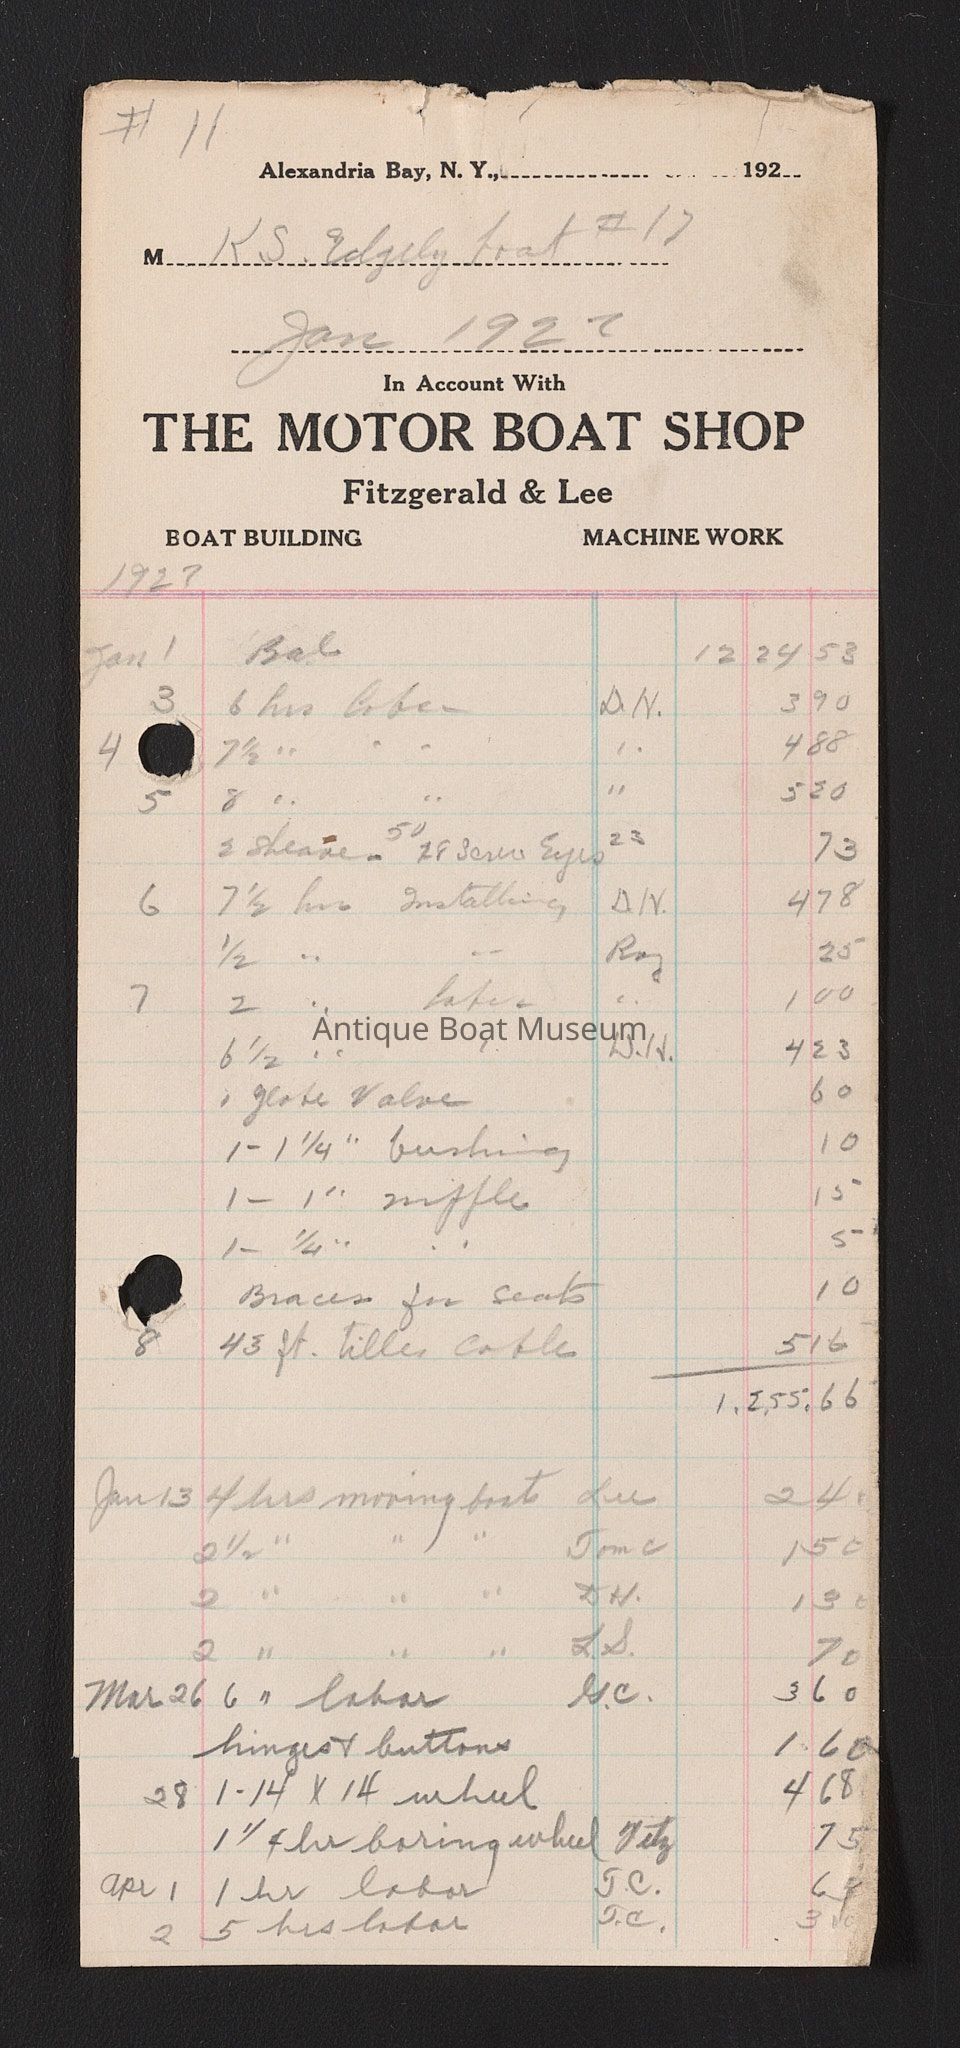 # 11
Alexandria Bay, N. Y., 192
M K S. Edgely boat # 17
Jan 1927
In Account With
THE MOTOR BOAT SHOP
Fitzgerald & Lee
BOAT BUILDING MACHINE WORK
1927
Jan 1 Bal 12 24 53
3 6 hrs labor D.H. 3 90
4 7½ " " " " 4 88
5 8 " " " 5 20
2 Sheave - 50 28 Screw Eyes 23 73
6 7½ hrs Installing D.H. 4 78
½ " " Roy 25
7 2 " labor " 1 00
6½ " " D.H. 4 23
Antique Boat Museum
1 globe Valve 60
1 - 1¼" bushing 10
1 - 1" nipple 15
1 - ¼" " 5
Braces for seats 10
8 43 ft. tiller cable 5 16
1,255.66
Jan 13 4 hrs moving boats Lee 2 4
2½ " " " Tom C 1 50
2 " " " D H. 1 30
2 " " " L.S. 70
Mar 26 6 " labor G.C. 3 60
hinges & buttons 1 60
28 1 - 14 X 14 wheel 4 68
1¼ hr boring wheel Fitz 75
Apr 1 1 hr labor T.C. 6
2 5 hrs labor T.C. 3